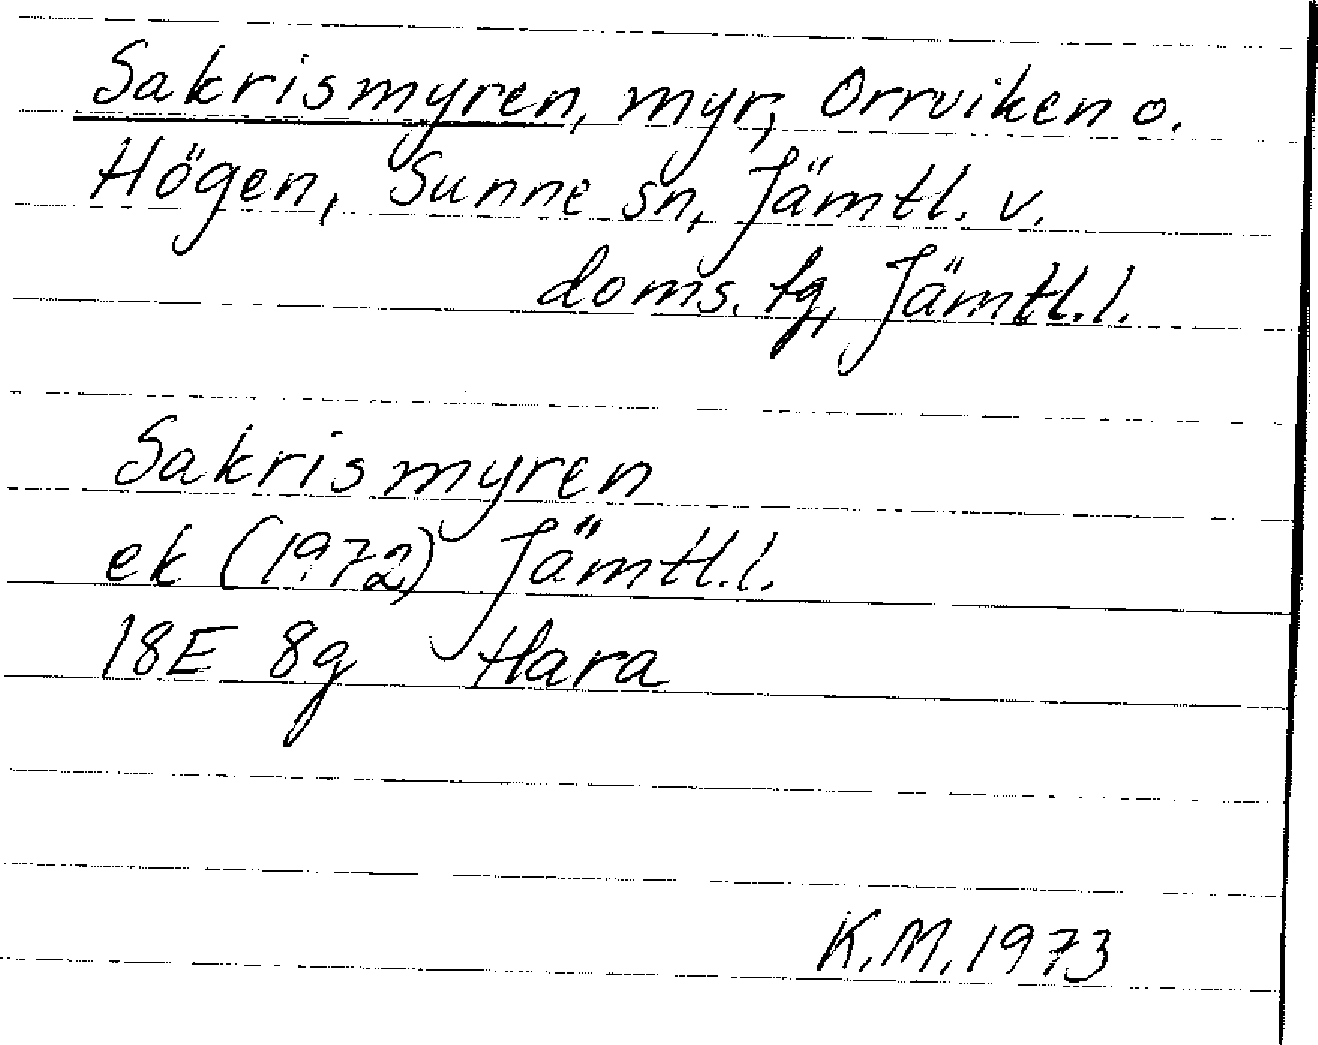 Sakrismyren, myr, Orrviken o.
Högen, Sunne sn, Jämtl. v.
doms. tg, Jämtl. l.
Sakrismyren
ek (1972) Jämtl. l.
18E 8g Hara
K.M. 1973